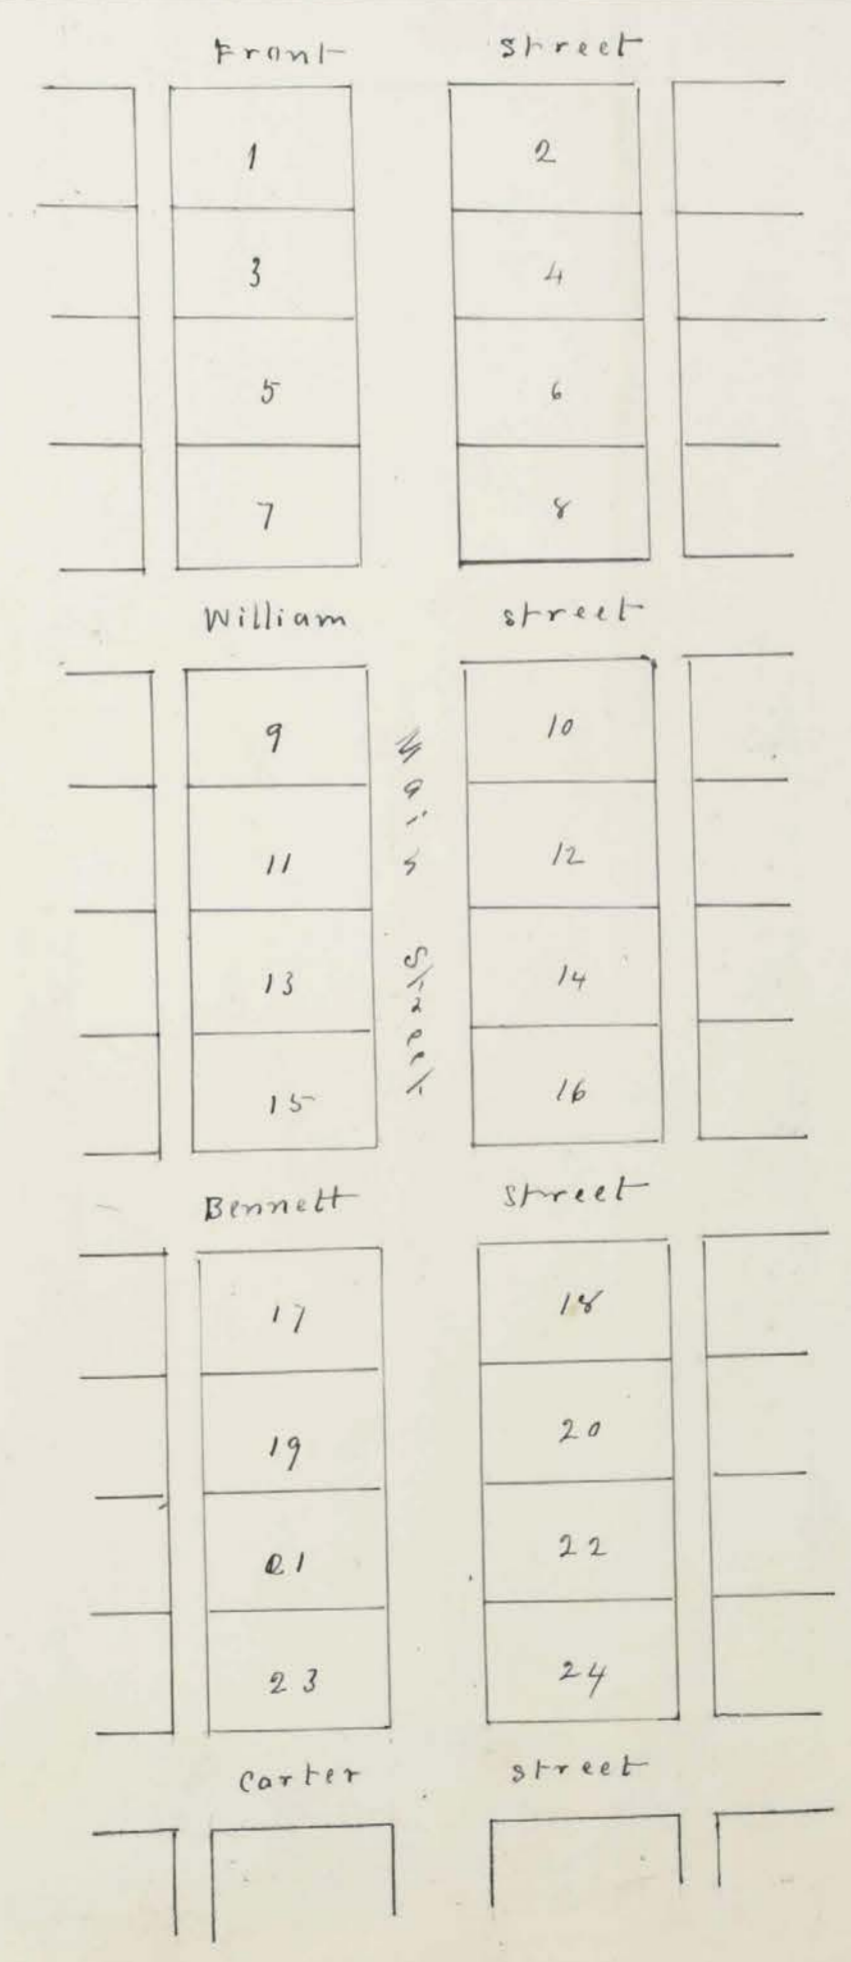 Front street
1 2
3 4
5 6
7 8
William street
9 10
11 12
13 14
15 16
Main Street
Bennett street
17 18
19 20
21 22
23 24
Carter street